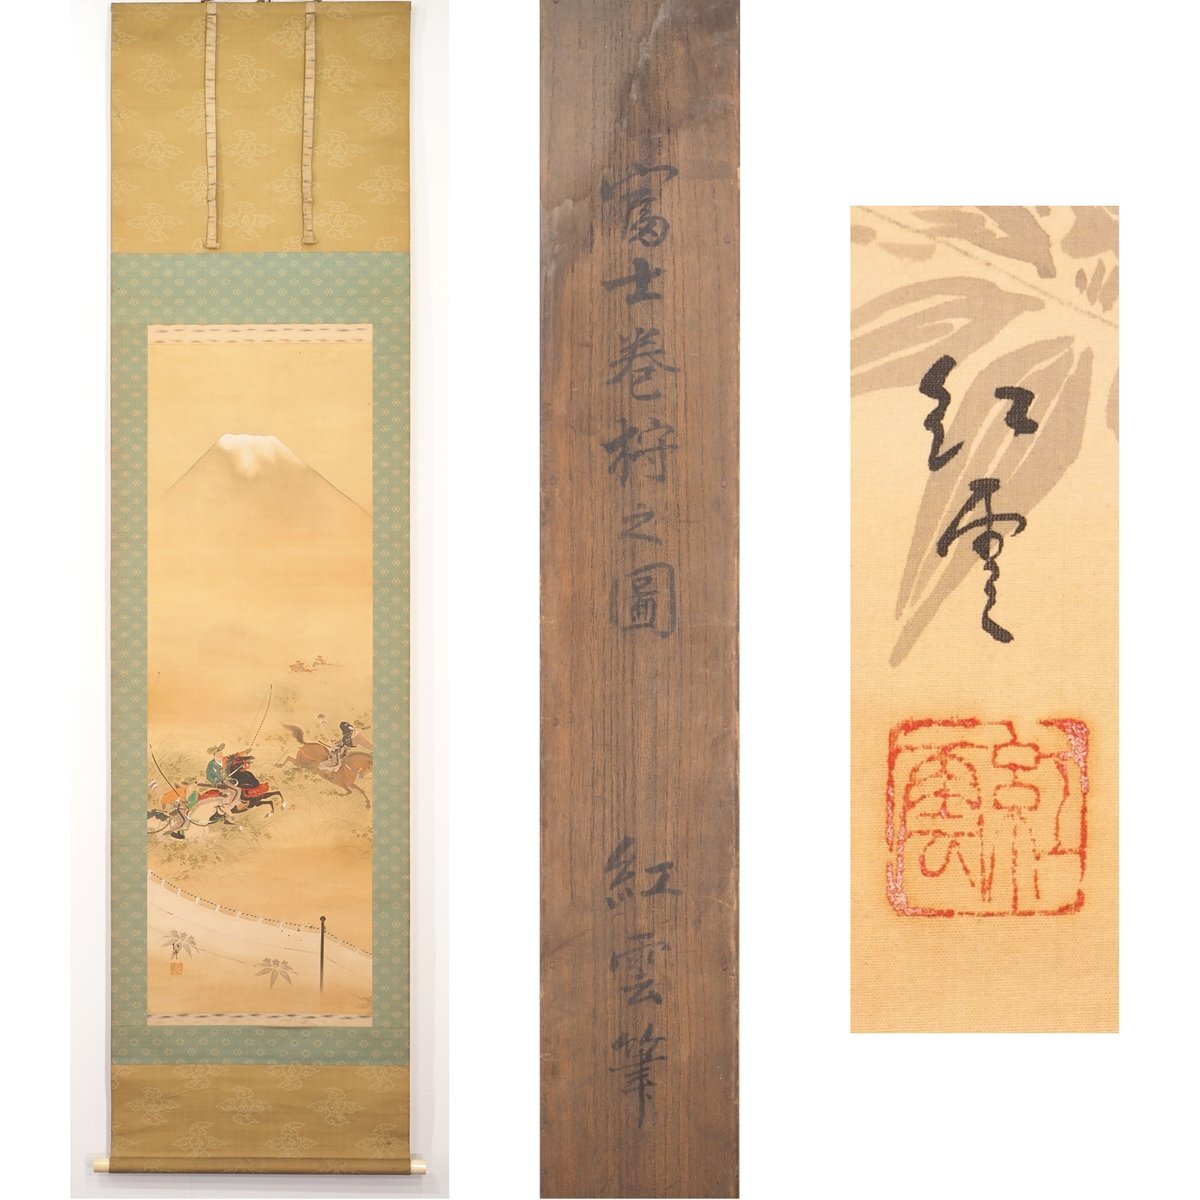 富士巻狩之圖
紅雲筆
紅雲
紅雲